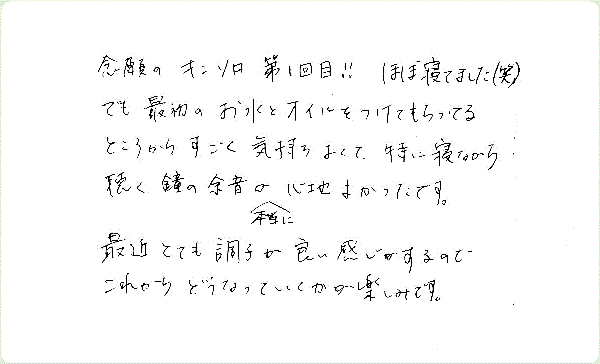 念願の オンソロ 第1回目!! ほぼ寝てました(笑)
でも 最初の お水とオイルをつけてもらってる
ところから すごく 気持ちよくて、特に寝ながら
聴く 鐘の余音が 心地よかったです。
本当に
最近 とても 調子が 良い感じがするので
これから どうなっていくかが楽しみです。